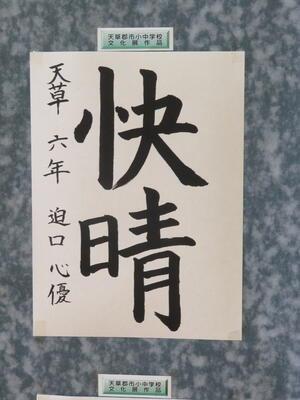 天草郡市小中学校
文化展作品
快晴
天草 六年 迫口 心優
天草郡市小中学校
文化展作品